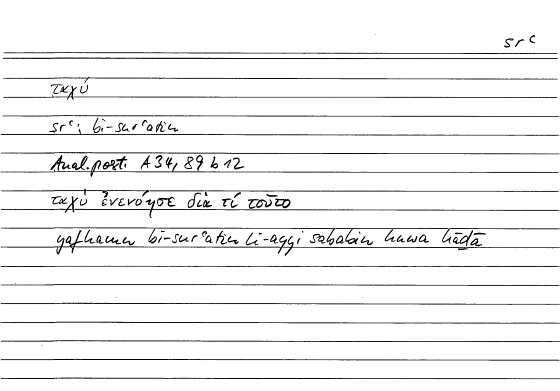 srʿ
ταχύ
srʿ; bi-surʿatin
Anal. post. A 34, 89 b 12
ταχὺ ἐνενόησε διὰ τί τοῦτο
yafhamu bi-surʿatin li-ayyi sababin huwa hāḏā